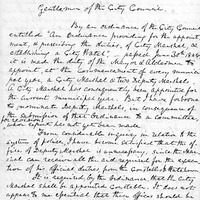 Gentlemen of the City Council
By an Ordinance of the City Council
entitled "An Ordinance providing for the appoint-
ment, & prescribing the duties, of City Marshal, &
establishing a City Watch", approved June 20. 1846
it is made the duty of the Mayor & Aldermen to
appoint, at the commencement of every munici-
pal year, a City Marshal & two Deputy Marshals.
A City Marshal has consequently been appointed for
the current municipal year. But I have forborne
to nominate Deputy Marshals, in consequence of
the submission of that Ordinance to a Committee
whose report has not yet been made.
From considerable inquiry, in relation to the
system of police, I have become satisfied that the of-
fice of Deputy Marshal is unnecessary, since the Mar-
shal can receive all the aid required for the execu-
tion of his official duties, from the Constables & Watchmen.
It is required by the Ordinance that the City
Marshal shall be appointed Constable. It does not
appear to me expedient that these offices should be